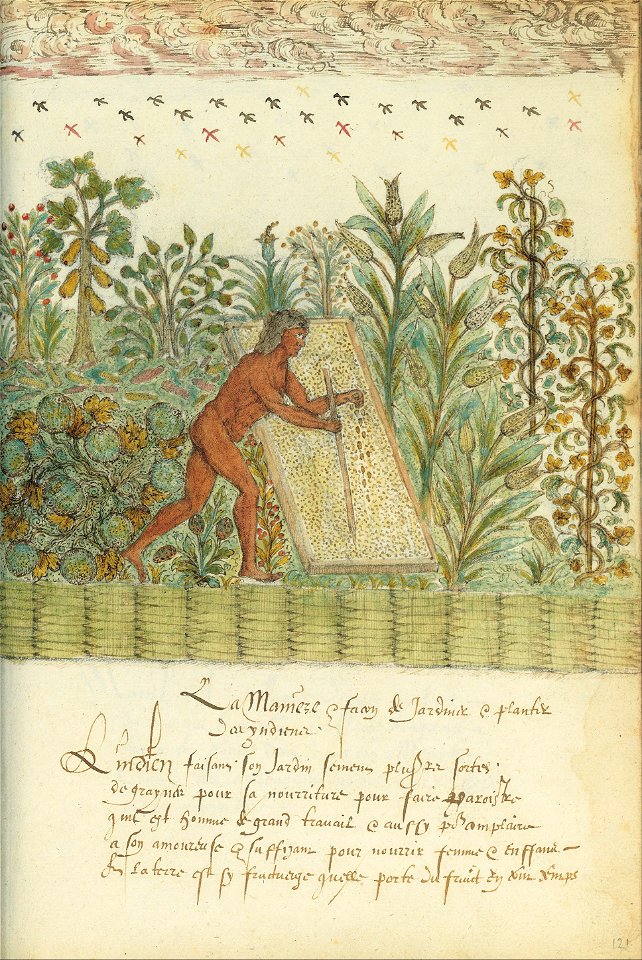 La Maniere & façon de Jardiner & planter
des yndiens
L'indien faisant son Jardin semens plusrs sortes
de graynes pour sa nourriture pour faire Paroistre
quil est homme de grand travail & aussy pr complaire
a son amoureuse & suffizant pour nourrir femme & enffans
la terre est sy fructueuse quelle porte du fruict en temps
121